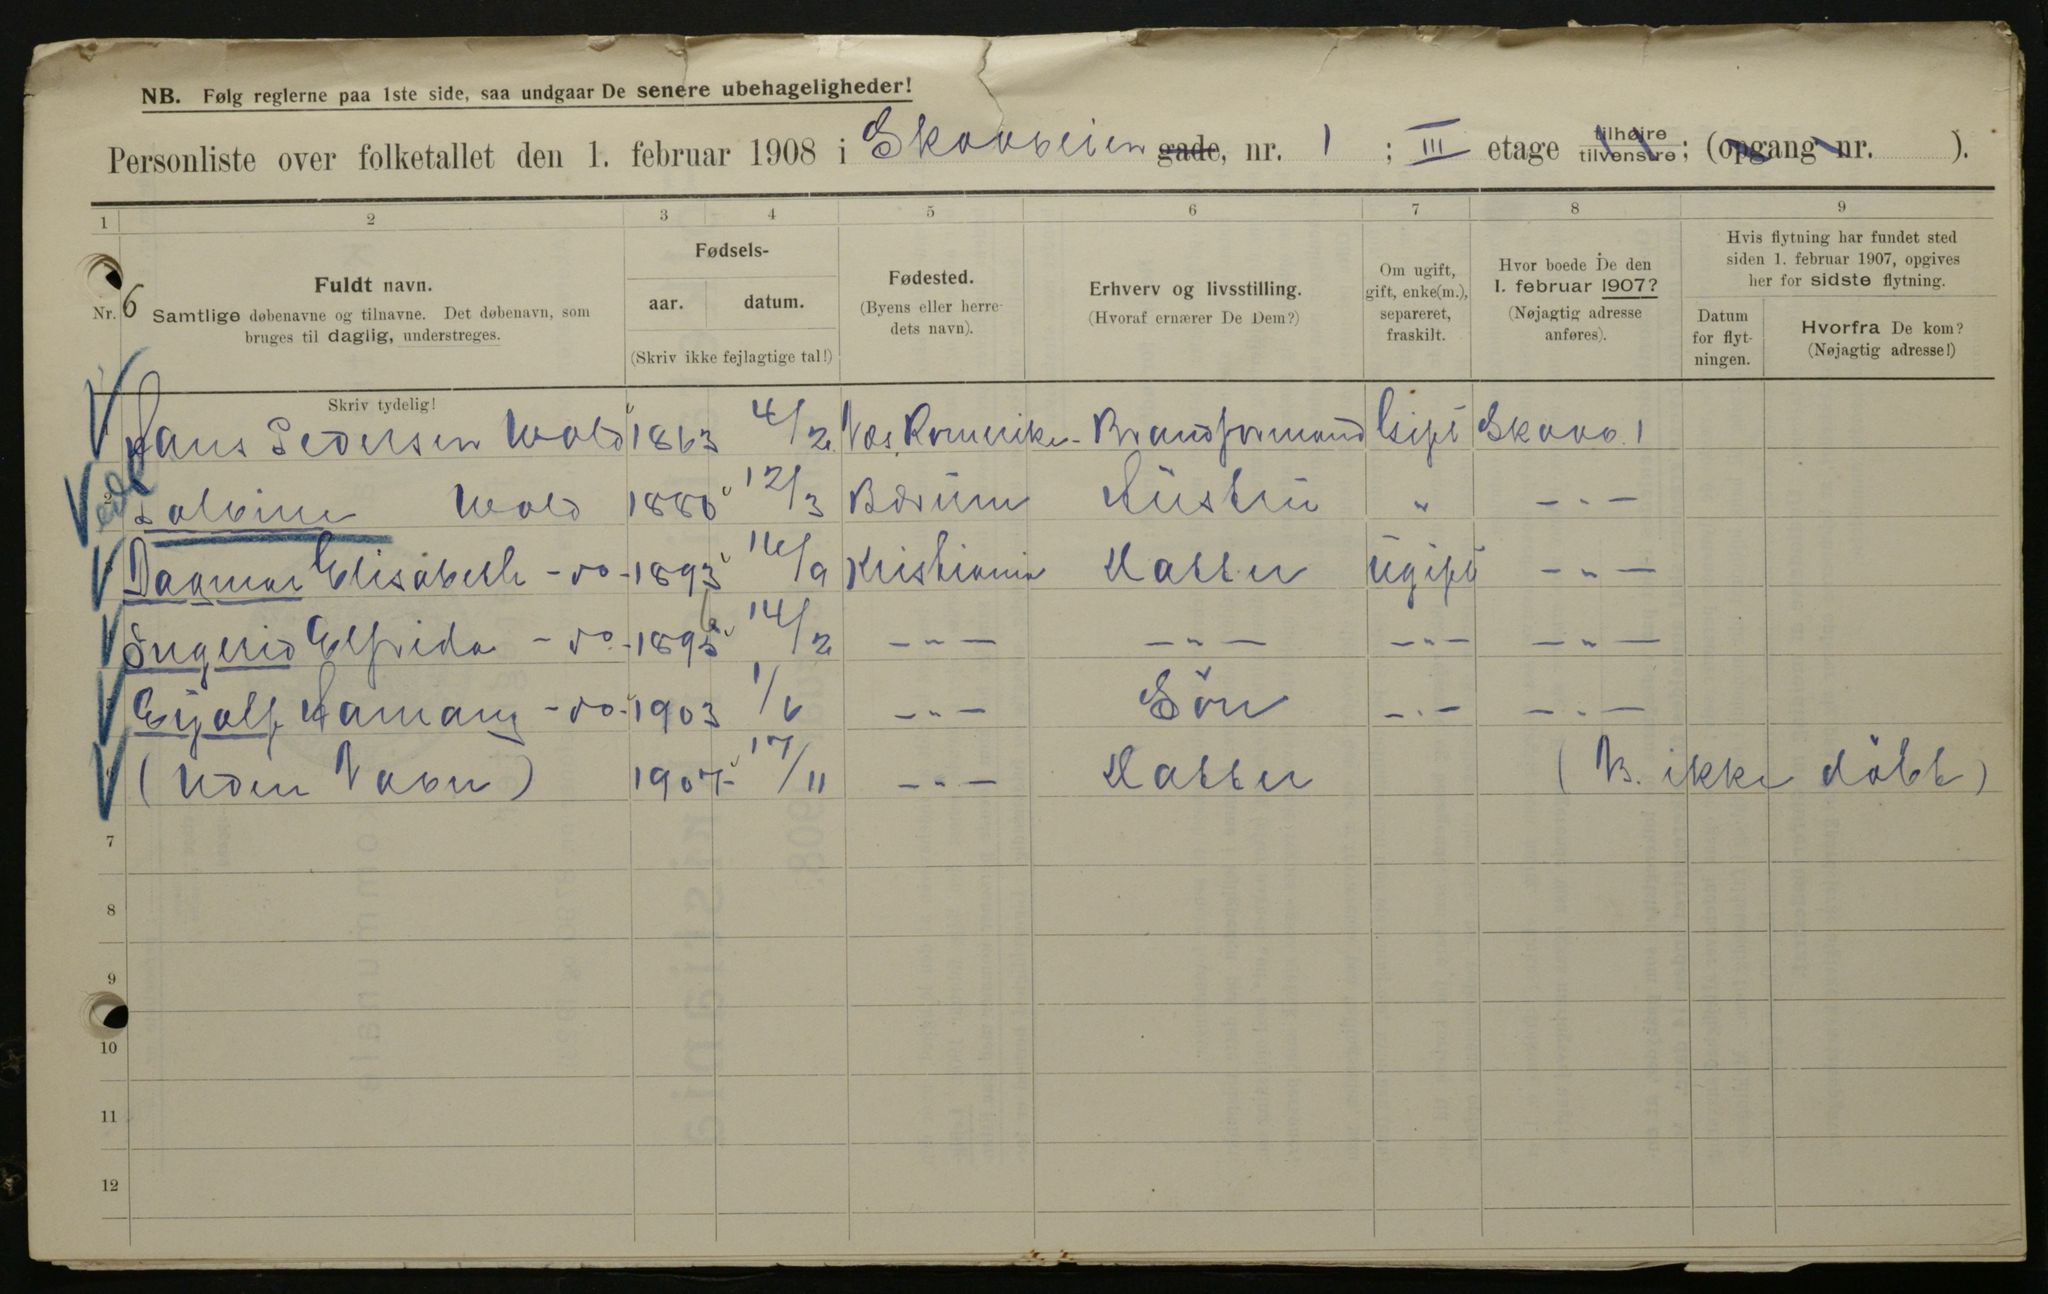 NB. Følg reglerne paa 1ste side, saa undgaar De senere ubehageligheder!
Personliste over folketallet den 1. februar 1908 i Skovveien gade, nr. 1 ; III etage tilhøire tilvenstre; (opgang nr. ).
1 2 3 4 5 6 7 8 9
Nr. 6
Fuldt navn.
Samtlige døbenavne og tilnavne. Det døbenavn, som
bruges til daglig, understreges.
Skriv tydelig!
Fødsels-
aar. datum.
(Skriv ikke fejlagtige tal!)
Fødested.
(Byens eller herre-
dets navn).
Erhverv og livsstilling.
(Hvoraf ernærer De Dem?)
Om ugift,
gift, enke(m.),
separeret,
fraskilt.
Hvor boede De den
1. februar 1907?
(Nøjagtig adresse
anføres).
Hvis flytning har fundet sted
siden 1. februar 1907, opgives
her for sidste flytning.
Datum
for flyt-
ningen.
Hvorfra De kom?
(Nøjagtig adresse!)
Hans Pedersen Wold 1863 4/2 Næs, Romerike Brandformand Gift Skovv. 1
2 Wold 1880 12/3 Bærum Hüstrü " - " -
Dagmar Elisabeth - do - 1893 16/9 Kristiania Datter Ugift - " -
Ingerid Elfrida - do - 1895 14/2 - " - - " - - " - - " -
Eyolf Harmany - do - 1903 1/6 - " - Sön - " - - " -
(Uden Navn) 1907 17/11 - " - Datter (N. ikke döbt)
7
8
9
10
11
12